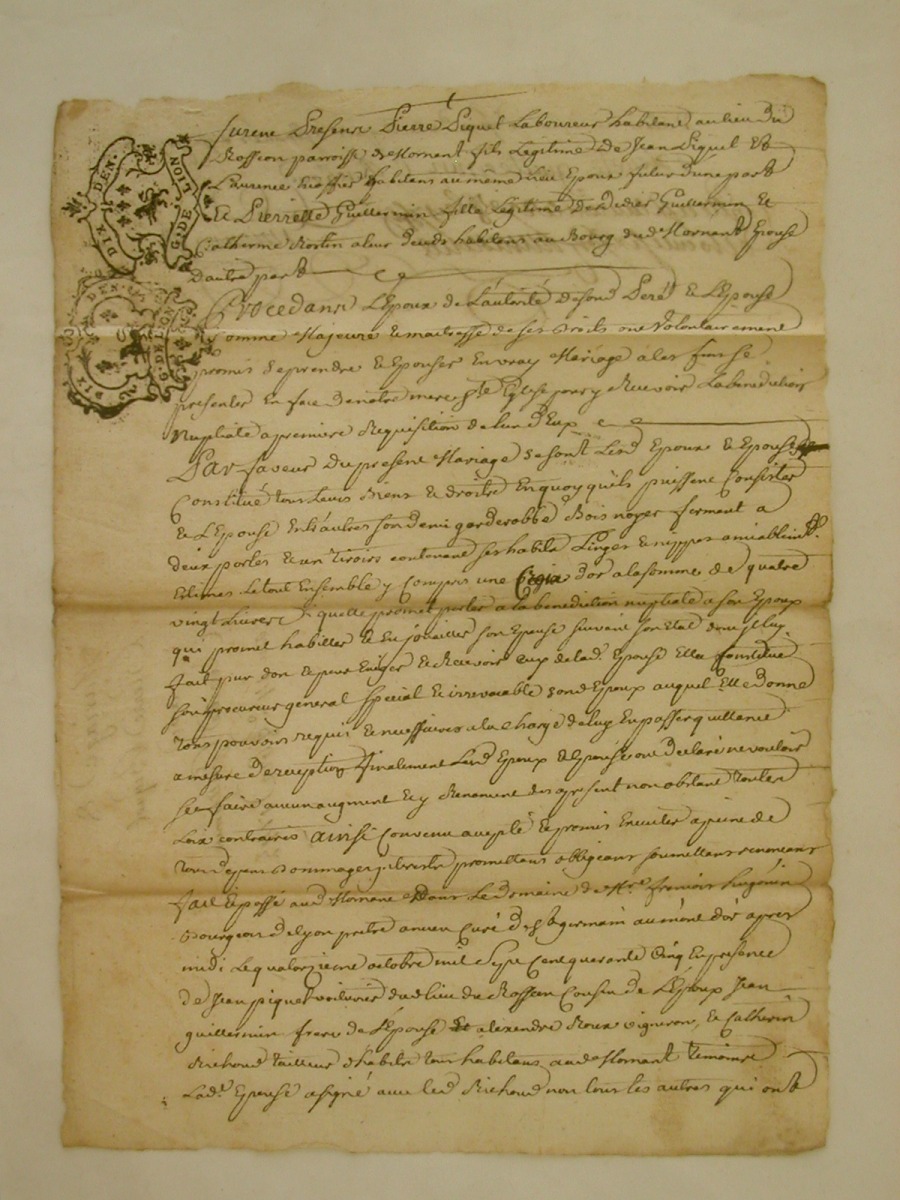 furent Presens Pierre Piquet Laboureur habitant au lieu du
Rosseon parroisse de Mornant fils Legitime de Jean Piquet Et
Laurence habitans au même lieu Epoux futur d'une part
Et Pierrette Guillermin fille Legitime de Guillermin Et
Catherine habitans au Bourg dud Mornant Epouse
D'autre part
Procedans L'Epoux de L'autorité desond Peré & L'Epouse
Comme Majeure & maitresse de ses Droits ont Volontairement
promis se prendre & Epouser En vray Mariage à la fin se
presenter En face De notre mere ste Eglise pour y Recevoir La benediction
Nuptiale a premiere Requisition de L'un d'Eux
Par faveur Du present Mariage se sont Lesd Epoux & Epouse
Constitué tous Leurs Biens & droits En quoy qu'ils puissent Consister
& L'Epouse Entr'autres son demi garderobbe Bois noyer fermant a
deux portes & un Tiroir contenant ses habits Linges & nippes amiablement
Estimes Le tout Ensemble y Compris une Croix d'or a la somme de quatre
vingt Livres quelle promet porter a La benediction nuptiale a son Epoux
qui promet habiller & Enjoailler son Epouse suivant son Etat dont il luy
fait pur don & pour Exiger & Recevoir de lad. Epouse Elle Constitue
son procureur general special & irrevocable sond Epoux auquel Elle Donne
Tous pouvoirs requis & necessaires a la Charge de luy En passer quittance
a mesure De reception finalement Lesd Epoux & Epouse ont Declaré ne vouloir
se faire aucun augment & y Renoncent des apresent non obstant Toutes
Loix contraires ainsi Convenu accepté & promis Executer a peine de
Tous dépens Dommages interests promettans obligeans soumettans renonceans
fait & passé aud Mornant Dans Le Domaine de Mre francois hugonin
Bourgeois de Lyon pretre ancien Curé de st germain au mont d'or apres
midi Le quatorzieme octobre mil Sept Cent quarante Cinq En presence
de Jean piquet voiturier dud lieu du Rosseon Cousin de L'Epoux Jean
guillermin frere de L'Epouse Et alexandre Roux vigneron, &
Richoud tailleur d'habits tous habitans aud Mornant temoins
Lad. Epouse a signé avec led Richoud non tous les autres qui ont
DIX DEN.
G. DE LION
DIX DEN.
G. DE LION